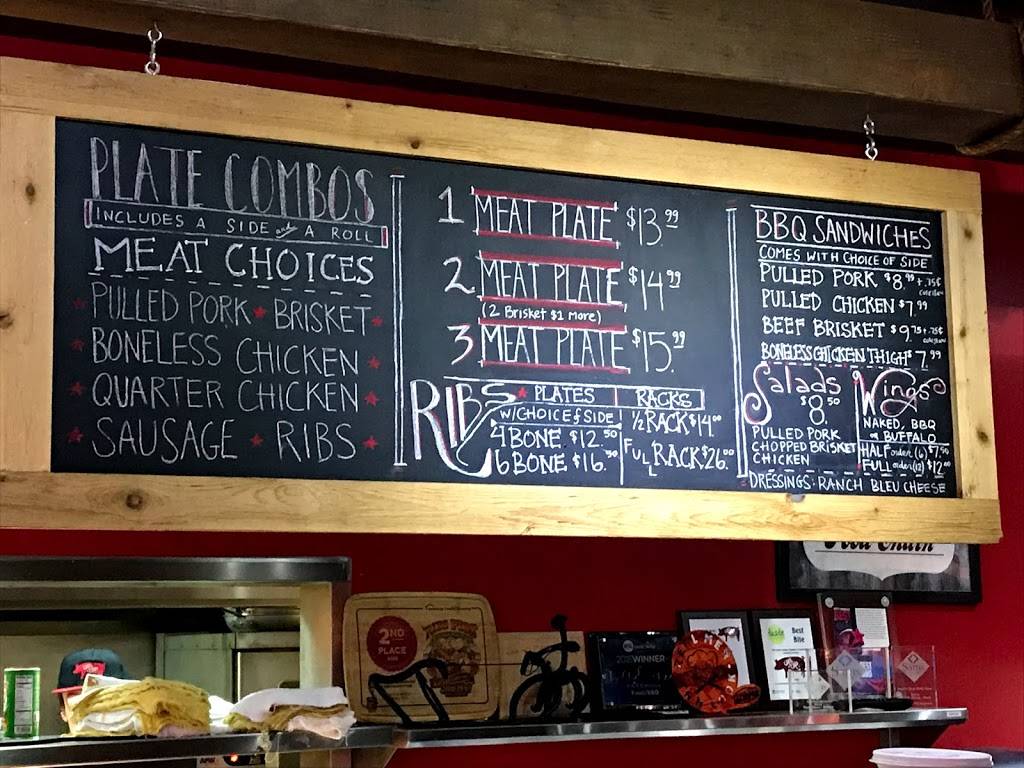 PLATE COMBOS
INCLUDES A SIDE and A ROLL
MEAT CHOICES
PULLED PORK ★ BRISKET ★
BONELESS CHICKEN ★
QUARTER CHICKEN ★
SAUSAGE ★ RIBS ★
1 MEAT PLATE $13.99
2 MEAT PLATE $14.99
(2 Brisket $1 More)
3 MEAT PLATE $15.99
RIBS ★ PLATES
W/CHOICE of SIDE
4 BONE $12.50
6 BONE $16.50
RACKS
1/2 RACK $14.00
FULL RACK $26.00
BBQ SANDWICHES
COMES WITH CHOICE OF SIDE
PULLED PORK $8.99 + .75¢
PULLED CHICKEN $7.99
BEEF BRISKET $9.75 + .75¢
BONELESS CHICKEN THIGH $7.99
Salads
$8.50
PULLED PORK
CHOPPED BRISKET
CHICKEN
Wings
NAKED, BBQ
or BUFFALO
HALF order (6) $7.50
FULL order (12) $12.00
DRESSINGS: RANCH BLEU CHEESE
Food Chain
2ND
PLACE
WINNER
Best
Bite